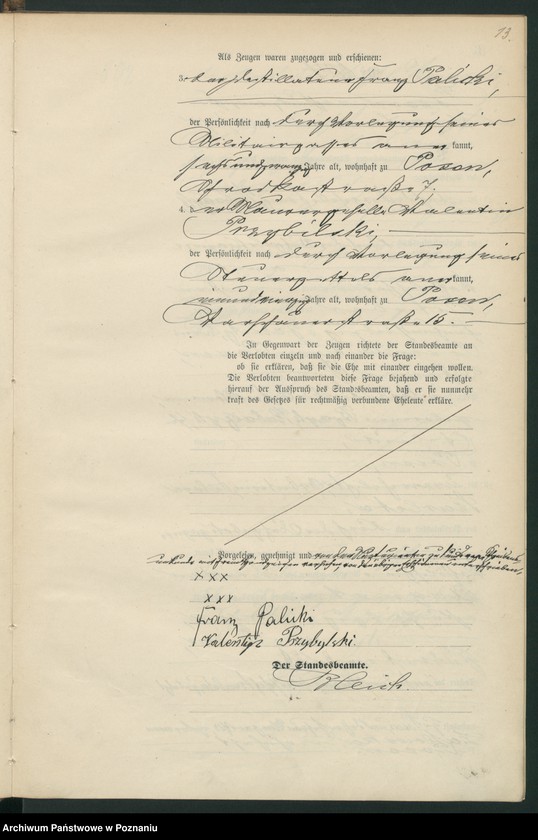 13.
Als Zeugen waren zugezogen und erschienen:
3. der Destillateur Franz Palicki,
der Persönlichkeit nach durch Vorlegung seines
Militairpasses anerkannt,
sechsundzwanzig Jahre alt, wohnhaft zu Posen,
Schrodkastraße 7;
4. der Maurergeselle Valentin
Przybilski,
der Persönlichkeit nach durch Vorlegung seines
Steuerzettels anerkannt,
Jahre alt, wohnhaft zu Posen,
Warschauerstraße 15.
In Gegenwart der Zeugen richtete der Standesbeamte an
die Verlobten einzeln und nach einander die Frage:
ob sie erklären, daß sie die Ehe mit einander eingehen wollen.
Die Verlobten beantworteten diese Frage bejahend und erfolgte
hierauf der Ausspruch des Standesbeamten, daß er sie nunmehr
kraft des Gesetzes für rechtmäßig verbundene Eheleute erkläre.
Vorgelesen, genehmigt und von den
mit Handzeichen versehen, von den übrigen Erschienenen unterschrieben.
x x x
x x x
Franz Palicki
Valentin Przybylski
Der Standesbeamte.
Bleich
Archiwum Państwowe w Poznaniu